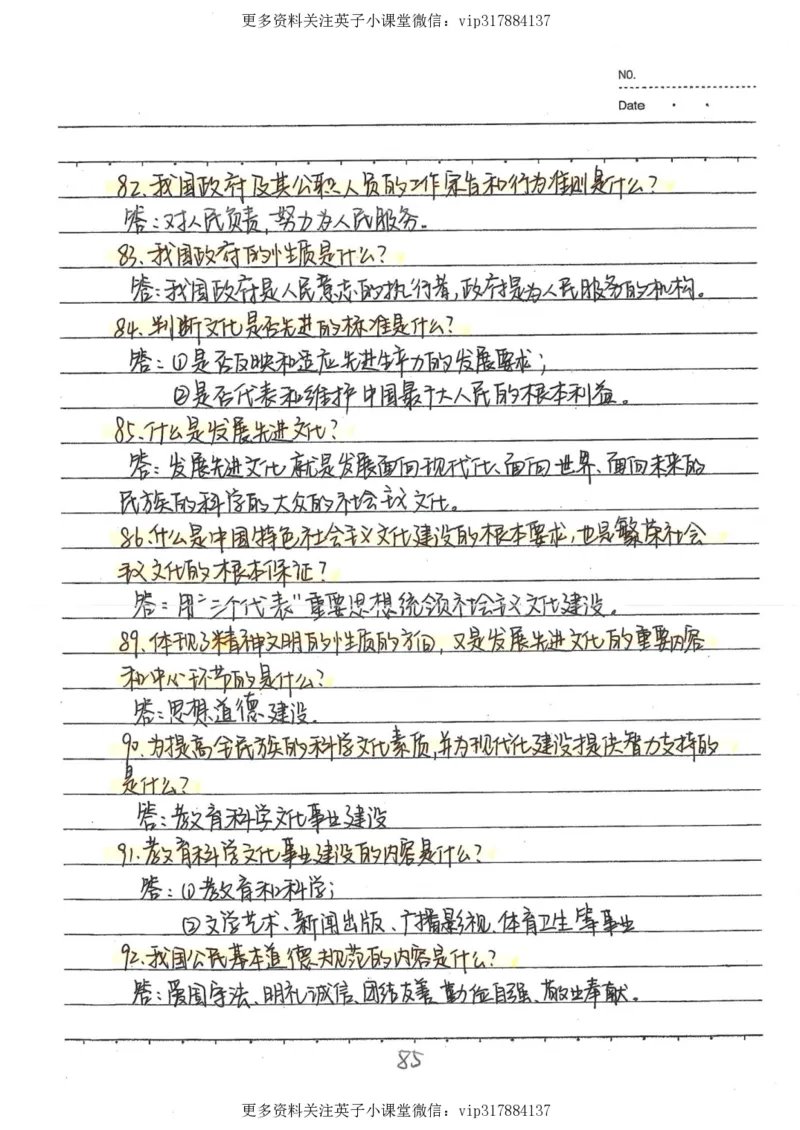 更多资料关注英子小课堂微信：vip317884137
NO.
Date
82.我国政府及其公职人员的工作宗旨和行为准则是什么？
答：对人民负责，努力为人民服务。
83.我国政府的性质是什么？
答：我国政府是人民意志的执行者，政府是为人民服务的机构。
84.判断文化是否先进的标准是什么？
答：①是否反映和适应先进生产力的发展要求；
②是否代表和维护中国最广大人民的根本利益。
85.什么是发展先进文化？
答：发展先进文化就是发展面向现代化、面向世界、面向未来的
民族的科学的大众的社会主义文化。
86.什么是中国特色社会主义文化建设的根本要求，也是繁荣社会
主义文化的根本保证？
答：用“三个代表”重要思想统领社会主义文化建设。
89.体现了精神文明的性质的方向，又是发展先进文化的重要内容
和中心环节的是什么？
答：思想道德建设。
90.为提高全民族的科学文化素质，并为现代化建设提供智力支持的
是什么？
答：教育科学文化事业建设
91.教育科学文化事业建设的内容是什么？
答：①教育和科学；
②文学艺术、新闻出版、广播影视、体育卫生等事业
92.我国公民基本道德规范的内容是什么？
答：爱国守法、明礼诚信、团结友善、勤俭自强、敬业奉献。
85
更多资料关注英子小课堂微信：vip317884137